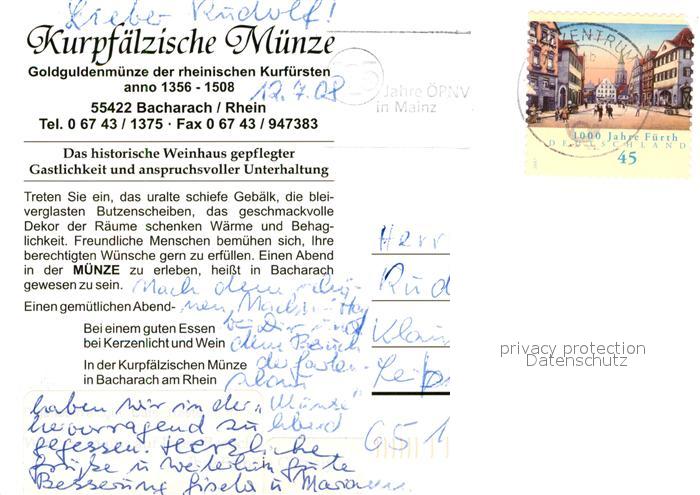 Lieber Rudolf!
Kurpfälzische Münze
Goldguldenmünze der rheinischen Kurfürsten
anno 1356 - 1508
12.7.08
55422 Bacharach / Rhein
Tel. 0 67 43 / 1375 · Fax 0 67 43 / 947383
Jahre ÖPNV
in Mainz
ZENTRUM
1000 Jahre Fürth
DEUTSCHLAND
45
Das historische Weinhaus gepflegter
Gastlichkeit und anspruchsvoller Unterhaltung
Treten Sie ein, das uralte schiefe Gebälk, die blei-
verglasten Butzenscheiben, das geschmackvolle
Dekor der Räume schenken Wärme und Behag-
lichkeit. Freundliche Menschen bemühen sich, Ihre
berechtigten Wünsche gern zu erfüllen. Einen Abend
in der MÜNZE zu erleben, heißt in Bacharach
gewesen zu sein.
Nach dem schö-
Einen gemütlichen Abend-
nen
Bei einem guten Essen
bei Dir und
bei Kerzenlicht und Wein
dem Besuch
In der Kurpfälzischen Münze
der Garten-
in Bacharach am Rhein
haben wir in der "Münze"
hervorragend zu Abend
gegessen. Herzliche
Grüße u weiterhin gute
Besserung Gisela u
Herr
Rud
651
privacy protection
Datenschutz